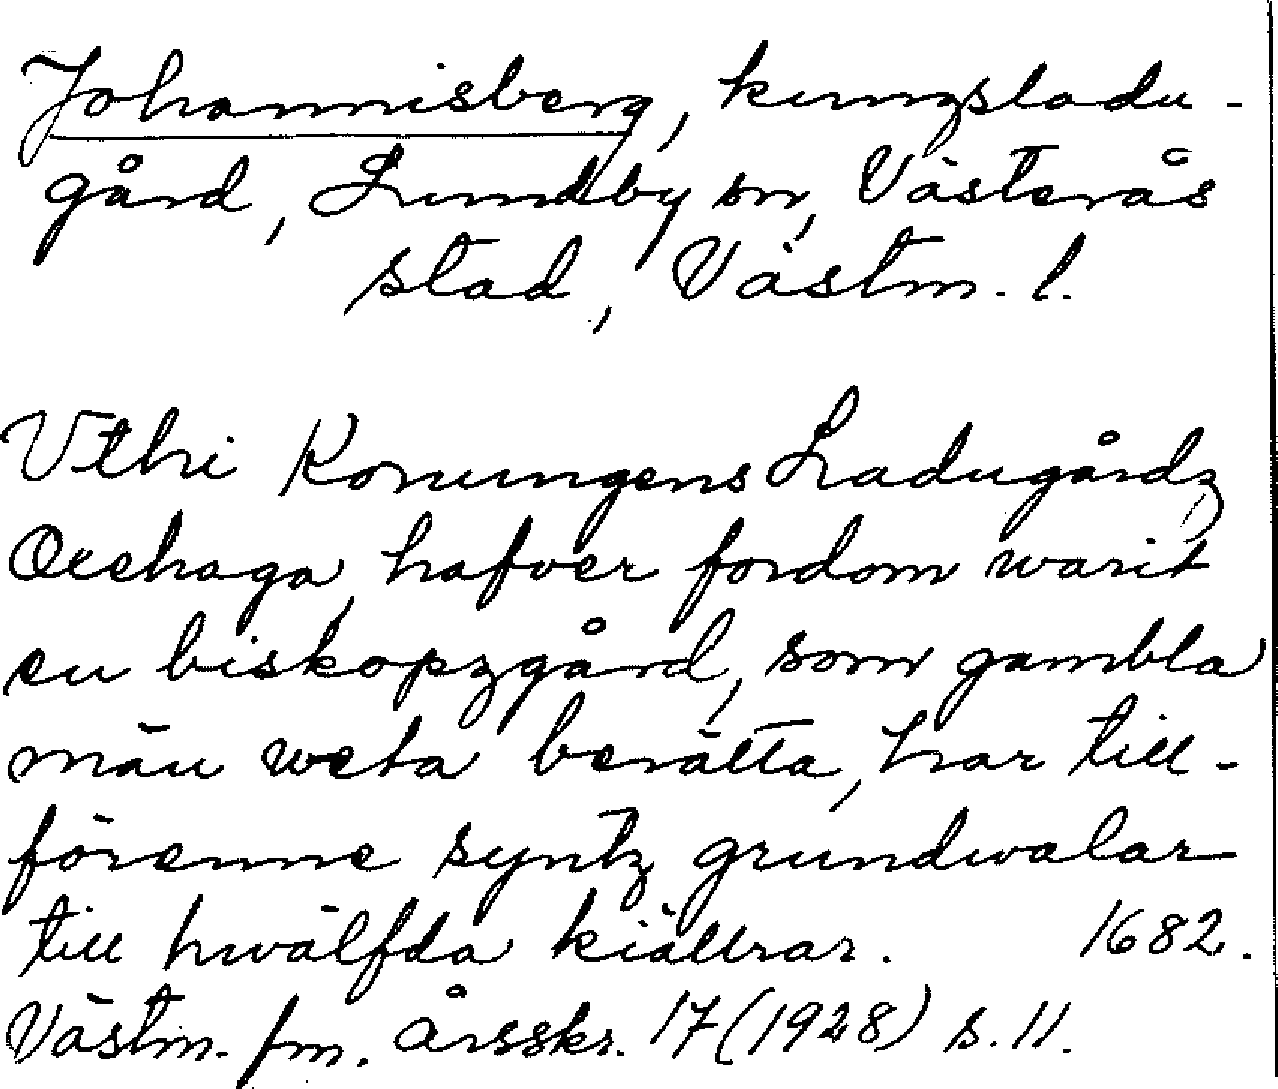 Johannisberg, kungsladu-
gård, Lundby sn, Västerås
stad, Västm. l.
Uthi Konungens Ladugårdz
Oexhaga, hafver fordom warit
en biskopzgård, som gambla
män weta berätta, har till-
förenne syntz grundwalar
till hwälfda kiällrar. 1682.
Västm. fm. årsskr. 17 (1928) s. 11.